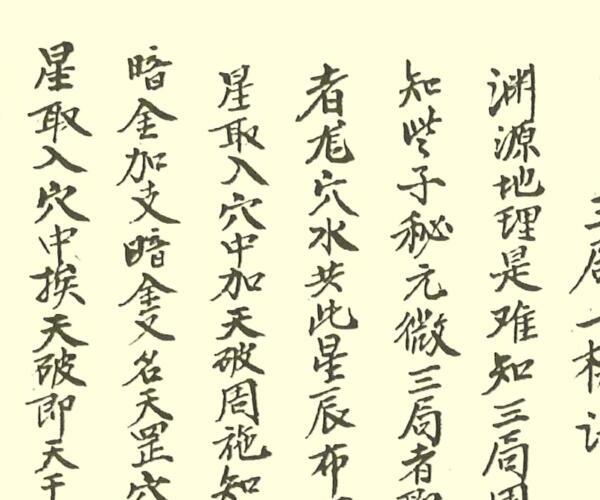 三局一
渊源地理是难知三局
知些子秘元微三局者
者龙穴水共此星辰布
星取入穴中加天破周施知
暗金加支暗金又名天罡穴
星取入穴中挨天破即天干